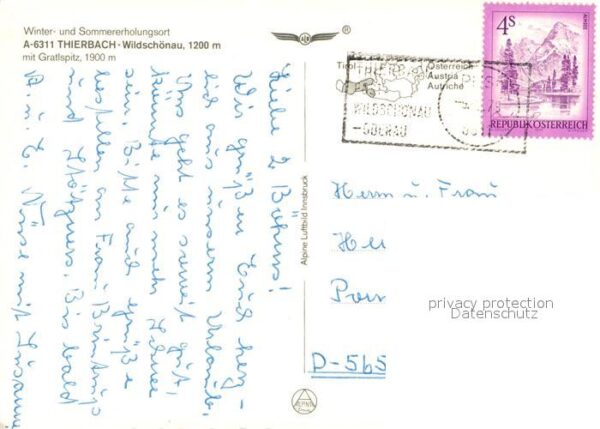 Winter- und Sommererholungsort
A-6311 THIERBACH - Wildschönau, 1200 m
mit Gratlspitz, 1900 m
Liebe 2 Böhms!
Wir grüßen Euch herz-
lich aus unserem Urlaub.
Uns geht es soweit gut,
könnte nur mehr Schnee
sein. Bitte auch Grüße
bestellen an Frau
und Bis bald
Alpine Luftbild Innsbruck
Tirol
Österreich
Austria
Autriche
WILDSCHÖNAU
-OBERAU
4S
ALMSEE
REPUBLIK ÖSTERREICH
Herrn u. Frau
D-565
privacy protection
Datenschutz